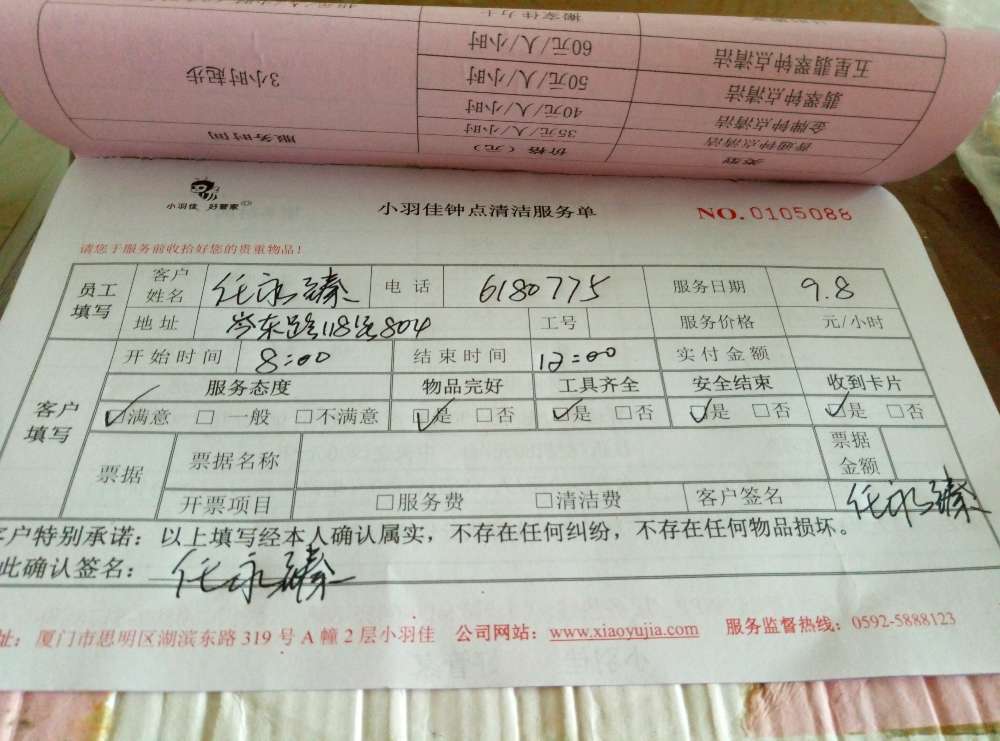 搬家佳力士
五星翡翠钟点清洁 60元/人/小时
翡翠钟点清洁 50元/人/小时 3小时起步
金牌钟点清洁 40元/人/小时
普通钟点清洁 35元/人/小时
类型 价格（元） 服务时间
小羽佳 好管家
小羽佳钟点清洁服务单 NO.0105088
请您于服务前收拾好您的贵重物品！
员工填写 客户姓名 任永臻 电话 6180775 服务日期 9.8
地址 东路118号804 工号 服务价格 元/小时
客户填写 开始时间 8:00 结束时间 12:00 实付金额
服务态度 物品完好 工具齐全 安全结束 收到卡片
☑满意 □一般 □不满意 ☑是 □否 ☑是 □否 ☑是 □否 ☑是 □否
票据 票据名称 票据金额
开票项目 □服务费 □清洁费 客户签名 任永臻
客户特别承诺：以上填写经本人确认属实，不存在任何纠纷，不存在任何物品损坏。
此确认签名：任永臻
址：厦门市思明区湖滨东路319号A幢2层小羽佳 公司网站：www.xiaoyujia.com 服务监督热线：0592-5888123